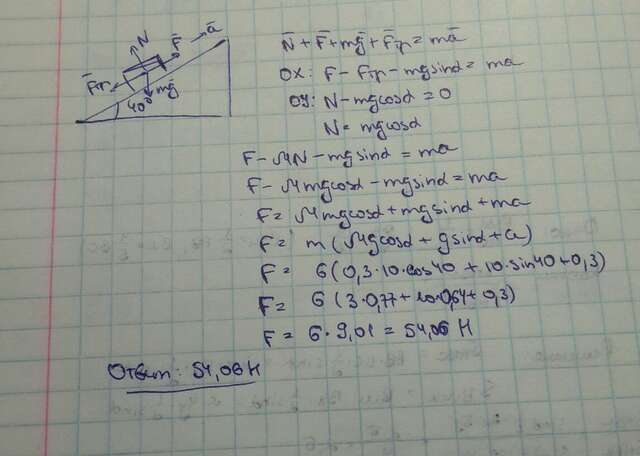 N F a
Fтр mg
40°
N̄ + F̄ + mḡ + F̄тр = mā
OX: F - Fтр - mgsinα = ma
OY: N - mgcosα = 0
N = mgcosα
F - μN - mgsinα = ma
F - μmgcosα - mgsinα = ma
F = μmgcosα + mgsinα + ma
F = m (μgcosα + gsinα + a)
F = 6 (0,3·10·cos40 + 10·sin40 + 0,3)
F = 6 (3·0,77 + 10·0,64 + 0,3)
F = 6 · 9,01 = 54,06 Н
Ответ: 54,06 Н